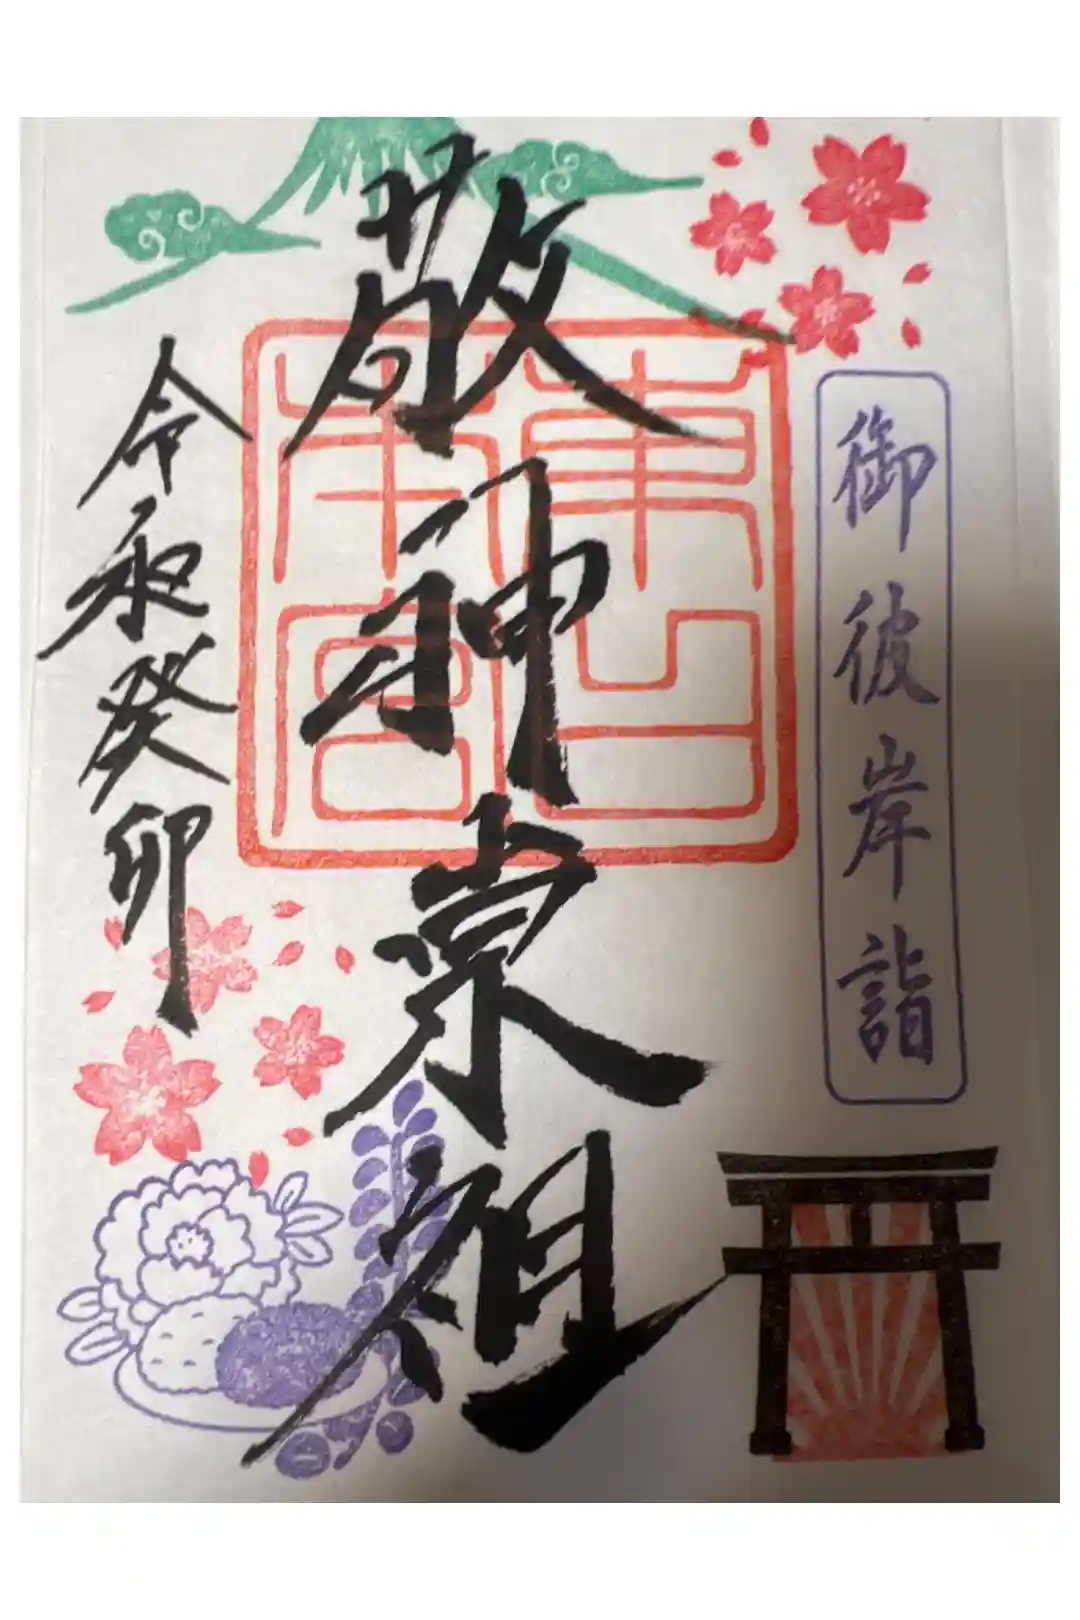 御彼岸詣
敬神崇祖
令和癸卯
東山
本宮